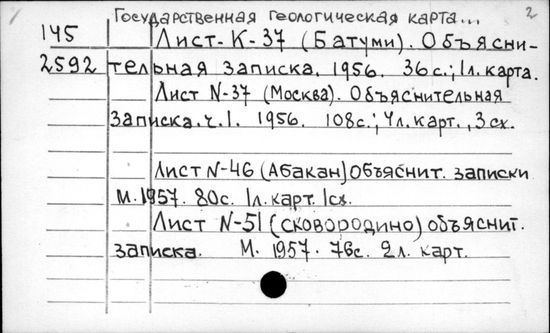 Государственная геологическая карта... 2
145 Лист-К-37 (Батуми). Объясни-
2592 тельная записка. 1956. 36 с.; 1л. карта.
Лист N-37 (Москва). Объяснительная
записка. ч.1. 1956. 108с.; 4л. карт., 3 сх.
Лист N-46 (Абакан) объяснит. записки
М. 1957. 80с. 1л. карт. 1сх.
Лист N-51 (сковородино) объяснит.
записка. М. 1957. 76с. 2л. карт.